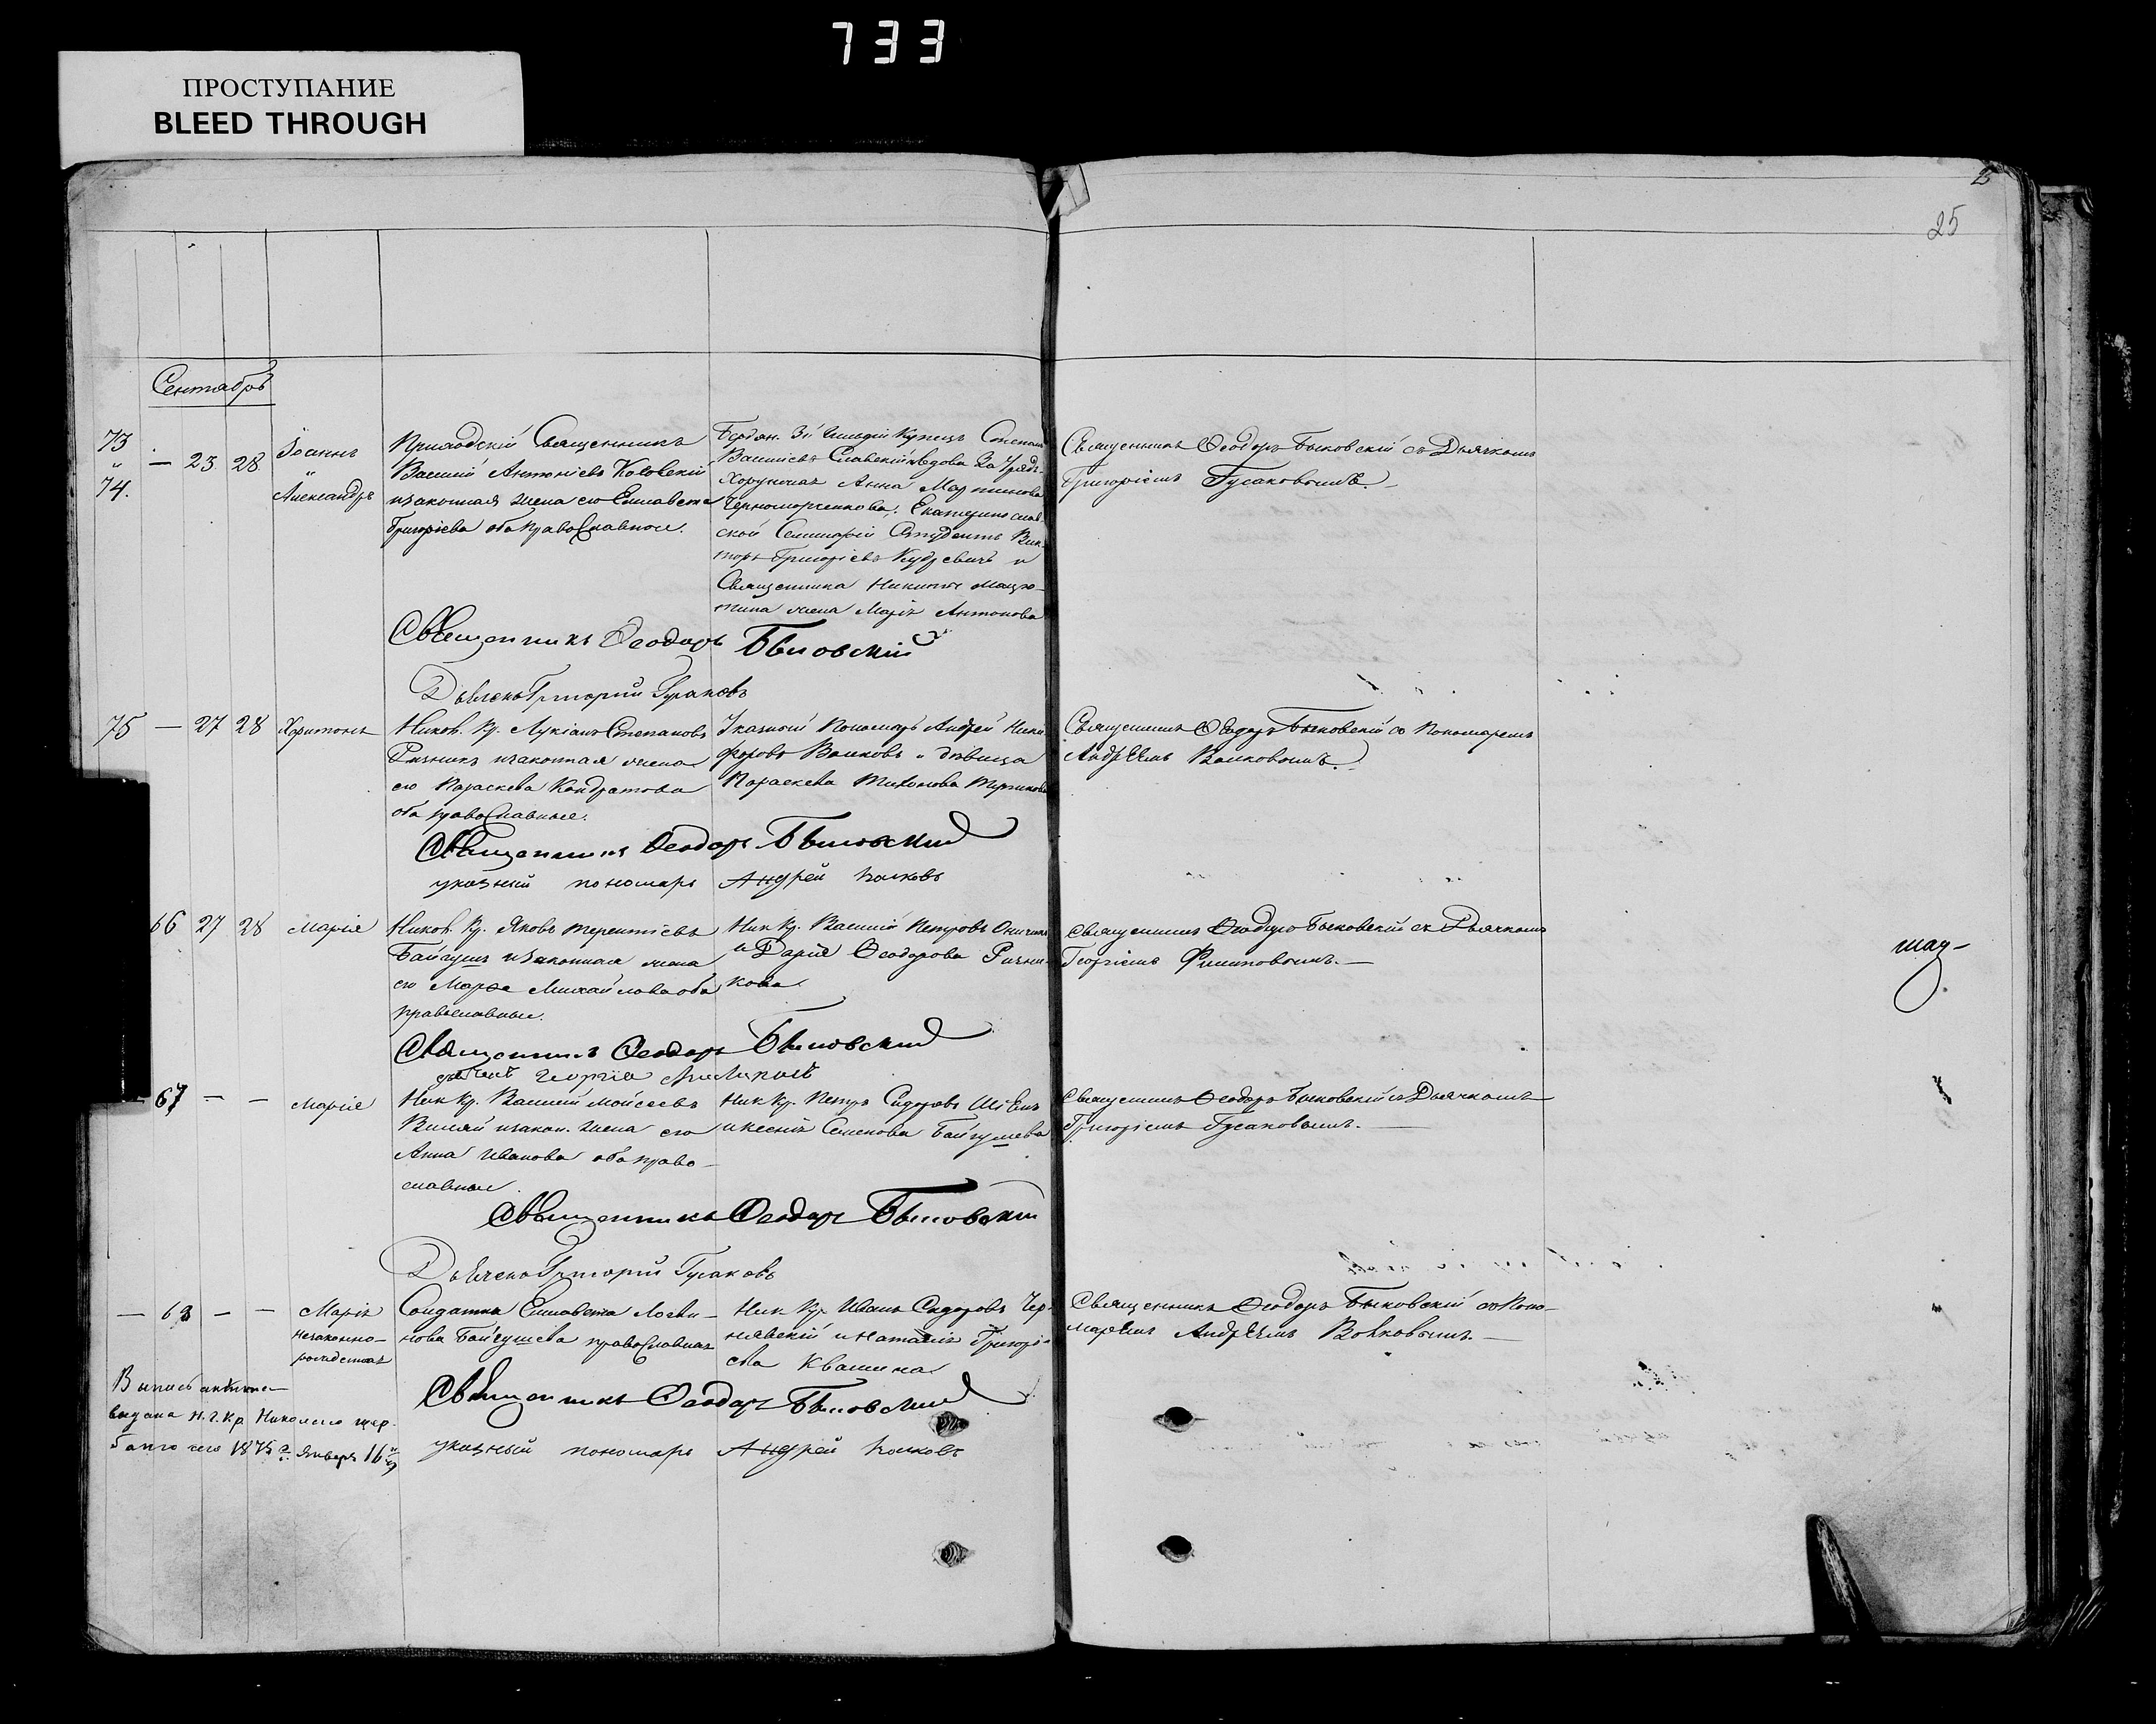 733
ПРОСТУПАНИЕ
BLEED THROUGH
25
25
Сентябрь
73 — 23 28 Іоаннъ
"
74. Александръ
Приходскій Священникъ
Василій Антоніевъ Котовскій
изаконная жена его Елисавета
Григоріева оба православные.
Бердян. 3й Гильдіи Купецъ Степанъ
Василіевъ Славскій и вдова За Уряд-
Хорунжаго Анна Мартинова
Черноморченкова, Екатеринослав-
ской Семинаріи Студентъ Вик-
торъ Григоріевъ и
Священника Никиты
жена Марія Антонова
Священникъ Ѳеодоръ Быковскій съ Дьячкомъ
Григоріемъ Гусаковымъ.
Священникъ Ѳеодоръ Быковскій
Дьячекъ Григорій Гусаковъ
75 — 27 28 Харитонъ
Ников. Кр. Лукіанъ Степановъ
изаконная жена
его Параскева Кондратова
оба православные.
Указный Пономарь Андрей Ники-
форовъ Волковъ и девица
Параскева Тихонова
Священникъ Ѳеодоръ Быковскій со Пономаремъ
Андреемъ Волковымъ.
Священникъ Ѳеодоръ Быковский
указный пономарь Андрей Волковъ
66 27 28 Марія
Ников. Кр. Яковъ Терентіевъ
Байгушъ изаконная жена
его Марѳа Михайлова оба
православные.
Ник Кр. Василій Петровъ
и Дарія Ѳеодорова Рични-
кова
Священникъ Ѳеодоръ Быковскій съ Дьячкомъ
Георгіемъ Филиповымъ.—
Священникъ Ѳеодоръ Быковский
67 — — Марія
Ник Кр. Василій Мойсеевъ
изакон. жена его
Анна Иванова оба право-
славные.
Ник Кр. Петръ Сидоровъ
и Ксенія Семенова Байгушева
Священникъ Ѳеодоръ Быковскій съ Дьячкомъ
Григоріемъ Гусаковымъ.—
Священникъ Ѳеодоръ Быковский
Дьячекъ Григорій Гусаковъ
— 68 — — Марія
незаконно-
рожденная
Солдатка Елисавета Логви-
нова Байгушева православная
Ник Кр Иванъ Сидоровъ Чер-
нявскій и Наталія Григорі-
ева Квашина
Священникъ Ѳеодоръ Быковскій со Поно-
маремъ Андреемъ Волковымъ.—
Священникъ Ѳеодоръ Быковский
указный пономарь Андрей Волковъ
выдана Кр. Николаю Щер-
сего 1875 г. Января 16